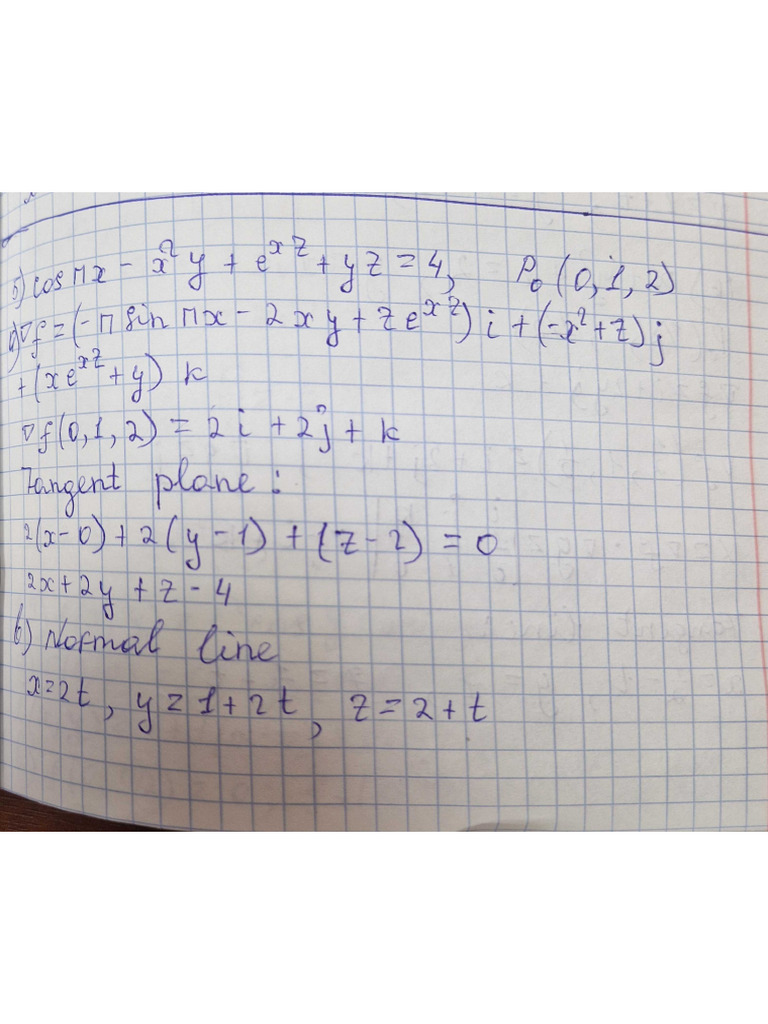 5) cos πx - x²y + e^xz + yz = 4, P₀(0, 1, 2)
a) ∇f = (-π sin πx - 2xy + ze^xz) i + (-x² + z) j
+ (xe^xz + y) k
∇f(0, 1, 2) = 2i + 2j + k
Tangent plane:
2(x-0) + 2(y-1) + (z-2) = 0
2x + 2y + z - 4
b) Normal line
x = 2t, y = 1 + 2t, z = 2 + t